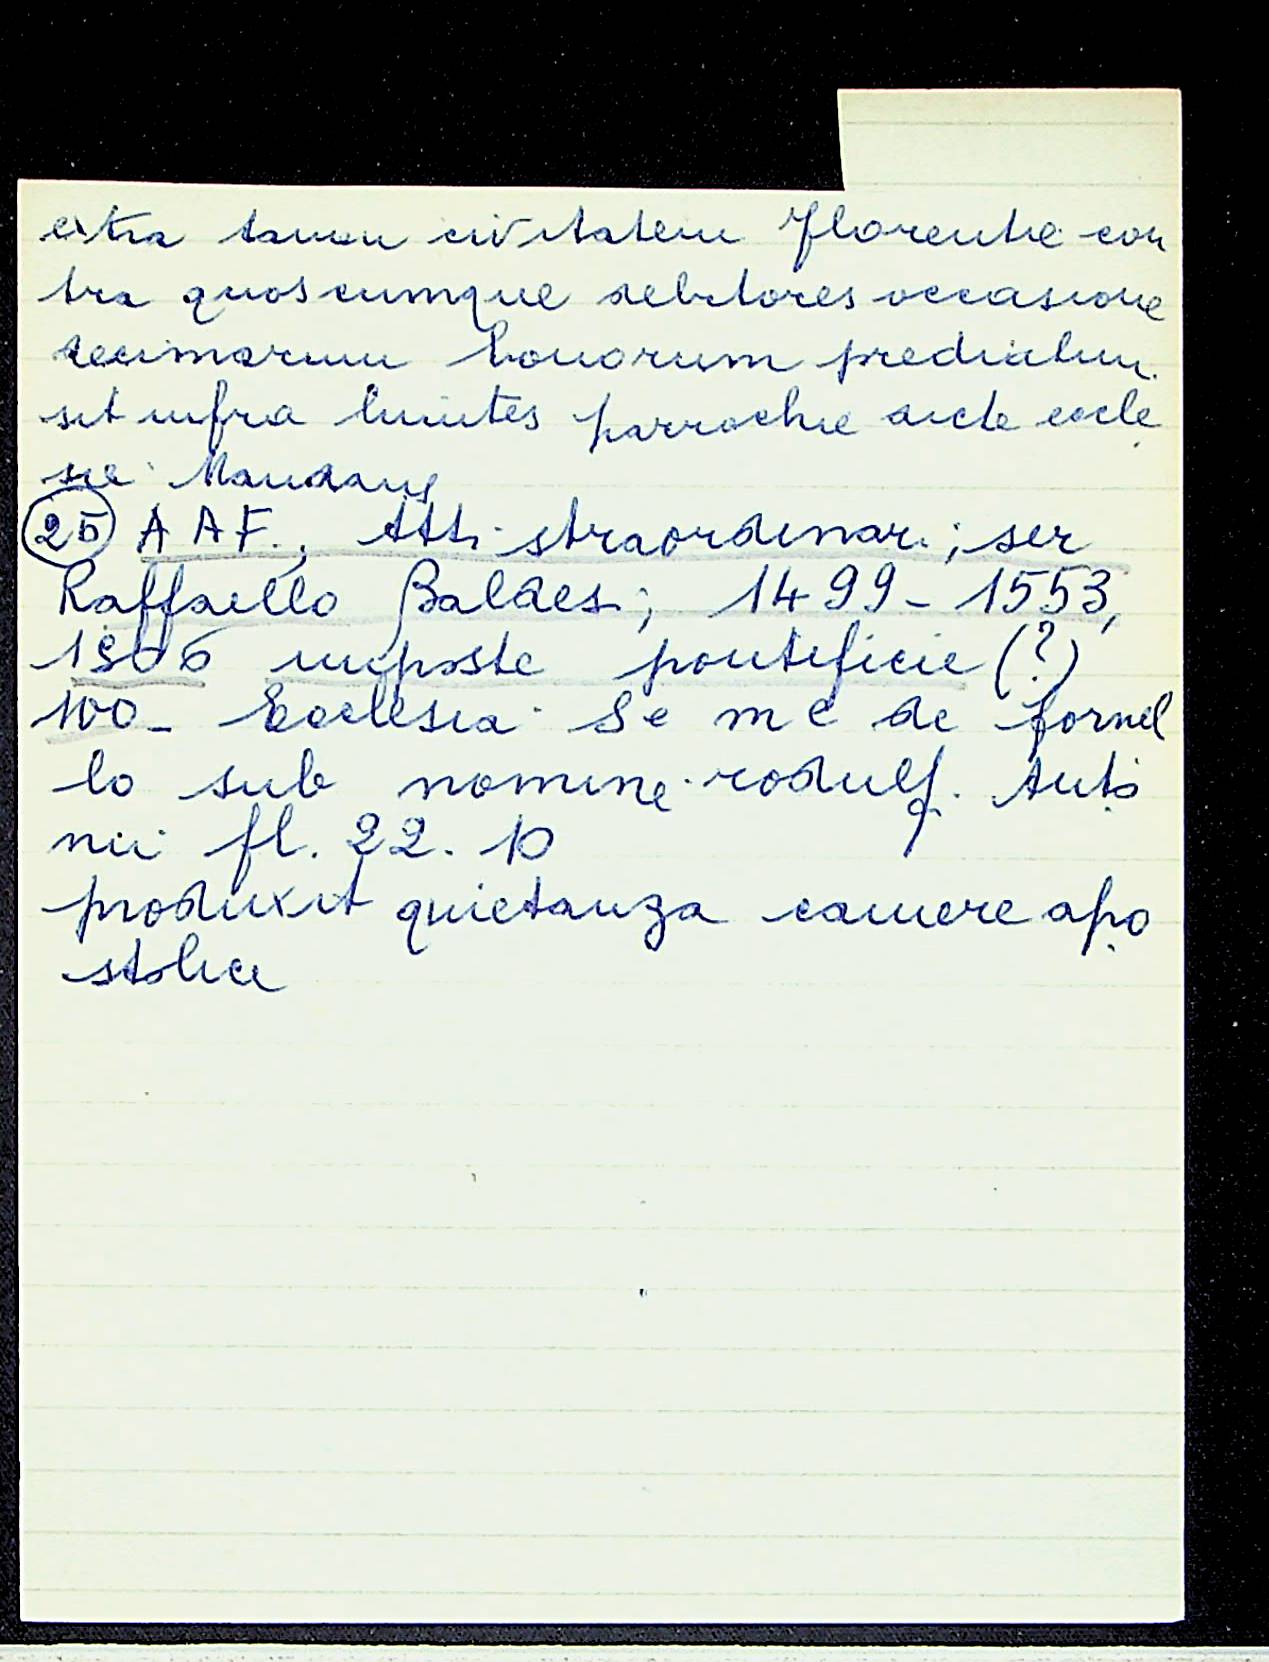 extra tamen civitatem Florentie con
tra quoscumque debitores occasione
decimarum bonorum predialium
sit infra limites parrochie dicte eccle
sie Mandans
25 A A F., Atti straordinari; ser
Raffaello Baldesi; 1499 - 1553,
1506 imposte pontificie (?)
100 - Ecclesia Se me de fornel
lo sub nomine rodulf. Anto
nii fl. 22. 10
produxit quietanza camere apo
stolice